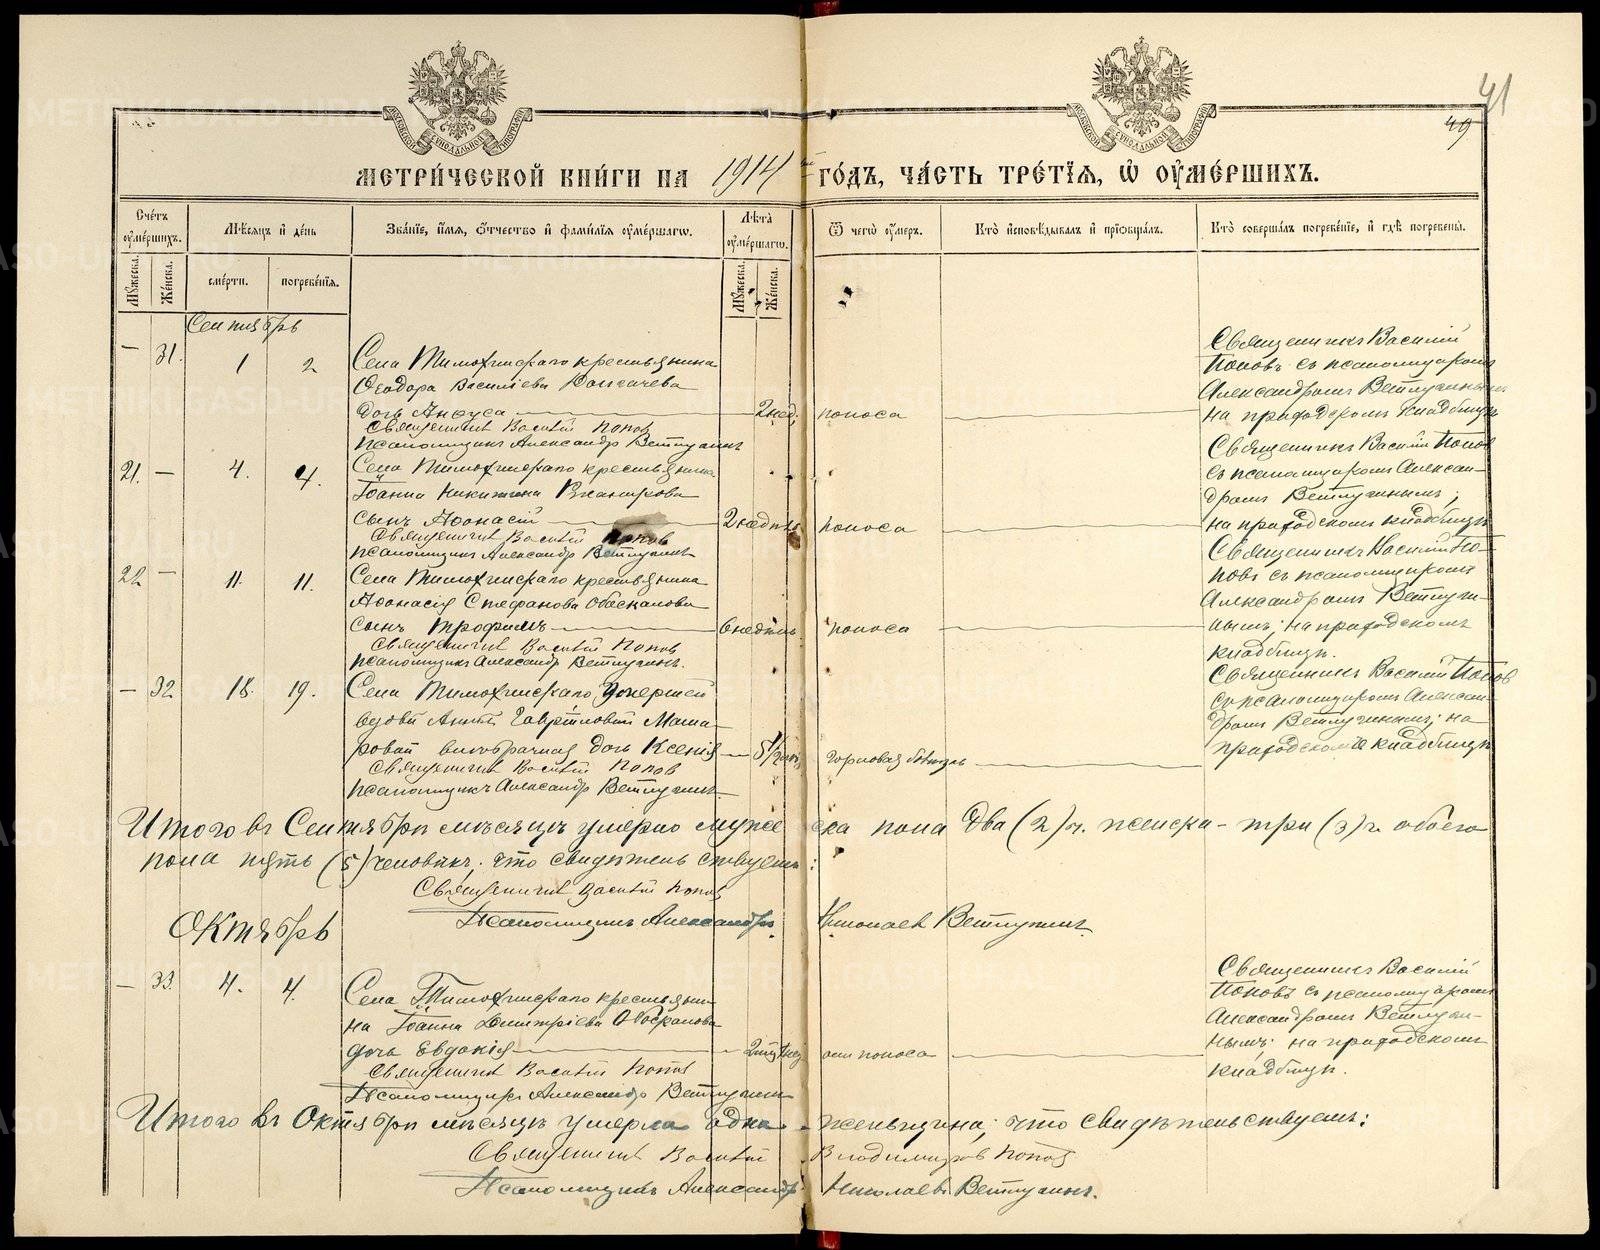 41
49
МЕТРИ́ЧЕСКОЙ КНИ́ГИ НА 1914 ГО́ДЪ, ЧА́СТЬ ТРЕ́ТІѦ, Ѡ ОУМЕ́РШИХЪ.
Сче́тъ оуме́ршихъ.
Мѣ́сяцъ и де́нь
Зва́нїе, и́мѧ, ѻ́тчество и фами́лїѧ оуме́ршагѡ.
Лѣ́та оуме́ршагѡ.
Ѿ чегѡ̀ оу́меръ.
Кто̀ и҆сповѣ́дывалъ и҆ прїѡбща́лъ.
Кто̀ соверша́лъ погребе́нїе, и҆ гдѣ̀ погребены̀.
Мꙋ́жеска.
Же́нска.
сме́рти.
погребе́нїѧ.
Мꙋ́жеска.
Же́нска.
Сентябрь
— 31. 1 2
Села Тимохинскаго крестьянина
Ѳеодора Василіева
дочь Анфуса — 2 нед. поноса
Священникъ Василій Поповъ
Псаломщикъ Александръ Ветлугинъ
Священникъ Василій
Поповъ съ псаломщикомъ
Александромъ Ветлугинымъ
на приходскомъ кладбищѣ
21. — 4. 4.
Села Тимохинскаго крестьянина
Іоанна Никитина
сынъ Аѳонасій — 2 недѣль поноса
Священникъ Василій Поповъ
Псаломщикъ Александръ Ветлугинъ
Священникъ Василій Поповъ
съ псаломщикомъ Алексан-
дромъ Ветлугинымъ;
на приходскомъ кладбищѣ
22 — 11. 11.
Села Тимохинскаго крестьянина
Аѳонасія Стефанова Обоскалова
сынъ Трофимъ — 6 недѣль поноса
Священникъ Василій Поповъ
Псаломщикъ Александръ Ветлугинъ.
Священникъ Василій По-
повъ съ псаломщикомъ
Александромъ Ветлуги-
нымъ; на приходскомъ
кладбищѣ.
— 32 18. 19.
Села Тимохинскаго
вдовы Анны Гавріиловой Мака-
ровой внебрачная дочь Ксенія — 5 1/2 горловая болѣзнь
Священникъ Василій Поповъ
Псаломщикъ Александръ Ветлугинъ
Священникъ Василій Поповъ
съ псаломщикомъ Алексан-
дромъ Ветлугинымъ; на
приходскомъ кладбищѣ
Итого въ Сентябрѣ мѣсяцѣ умерло мужеска пола два (2) ч. женска - три (3) ч. обоего
пола пять (5) человѣкъ; что свидѣтельствуемъ:
Священникъ Василій Поповъ
Псаломщикъ Александръ Николаевъ Ветлугинъ.
Октябрь
— 33. 4. 4.
Села Тимохинскаго крестьяни-
на Іоанна Димитріева Обоскалова
дочь Евдокія — 2 нед. отъ поноса
Священникъ Василій Поповъ
Псаломщикъ Александръ Ветлугинъ
Священникъ Василій
Поповъ съ псаломщикомъ
Александромъ Ветлуги-
нымъ: на приходскомъ
кладбищѣ.
Итого въ Октябрѣ мѣсяцѣ умерла одна женщина; что свидѣтельствуемъ:
Священникъ Василій Владимировъ Поповъ
Псаломщикъ Александръ Николаевъ Ветлугинъ.